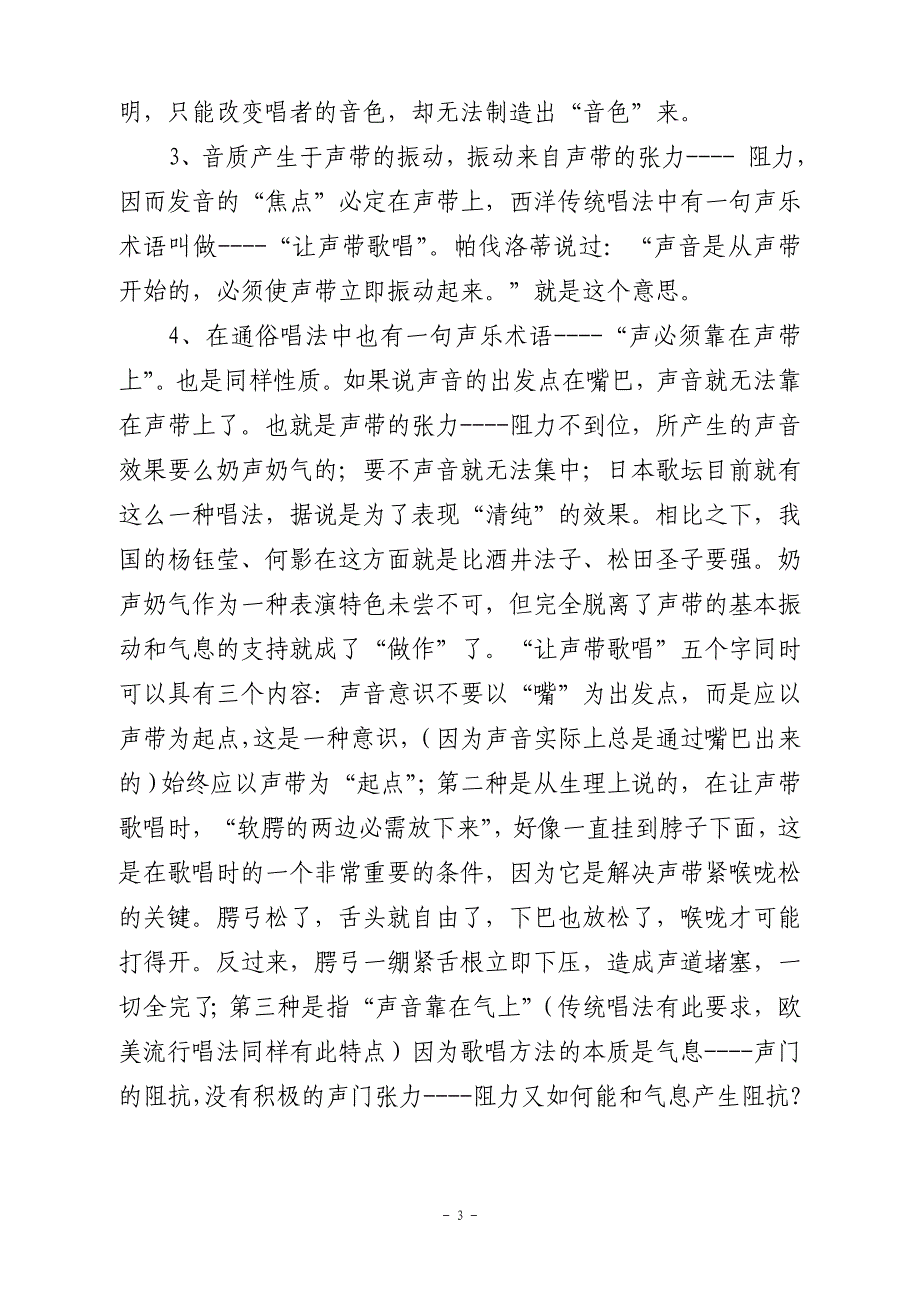 明，只能改变唱者的音色，却无法制造出“音色”来。
3、音质产生于声带的振动，振动来自声带的张力---- 阻力，
因而发音的“焦点”必定在声带上，西洋传统唱法中有一句声乐
术语叫做----“让声带歌唱”。帕伐洛蒂说过：“声音是从声带
开始的，必须使声带立即振动起来。”就是这个意思。
4、在通俗唱法中也有一句声乐术语----“声必须靠在声带
上”。也是同样性质。如果说声音的出发点在嘴巴，声音就无法靠
在声带上了。也就是声带的张力----阻力不到位，所产生的声音
效果要么奶声奶气的；要不声音就无法集中；日本歌坛目前就有
这么一种唱法，据说是为了表现“清纯”的效果。相比之下，我
国的杨钰莹、何影在这方面就是比酒井法子、松田圣子要强。奶
声奶气作为一种表演特色未尝不可，但完全脱离了声带的基本振
动和气息的支持就成了“做作”了。“让声带歌唱”五个字同时
可以具有三个内容：声音意识不要以“嘴”为出发点，而是应以
声带为起点，这是一种意识，（因为声音实际上总是通过嘴巴出来
的）始终应以声带为“起点”；第二种是从生理上说的，在让声带
歌唱时，“软腭的两边必需放下来”，好像一直挂到脖子下面，这
是在歌唱时的一个非常重要的条件，因为它是解决声带紧喉咙松
的关键。腭弓松了，舌头就自由了，下巴也放松了，喉咙才可能
打得开。反过来，腭弓一绷紧舌根立即下压，造成声道堵塞，一
切全完了；第三种是指“声音靠在气上”（传统唱法有此要求，欧
美流行唱法同样有此特点）因为歌唱方法的本质是气息----声门
的阻抗，没有积极的声门张力----阻力又如何能和气息产生阻抗？
- 3 -